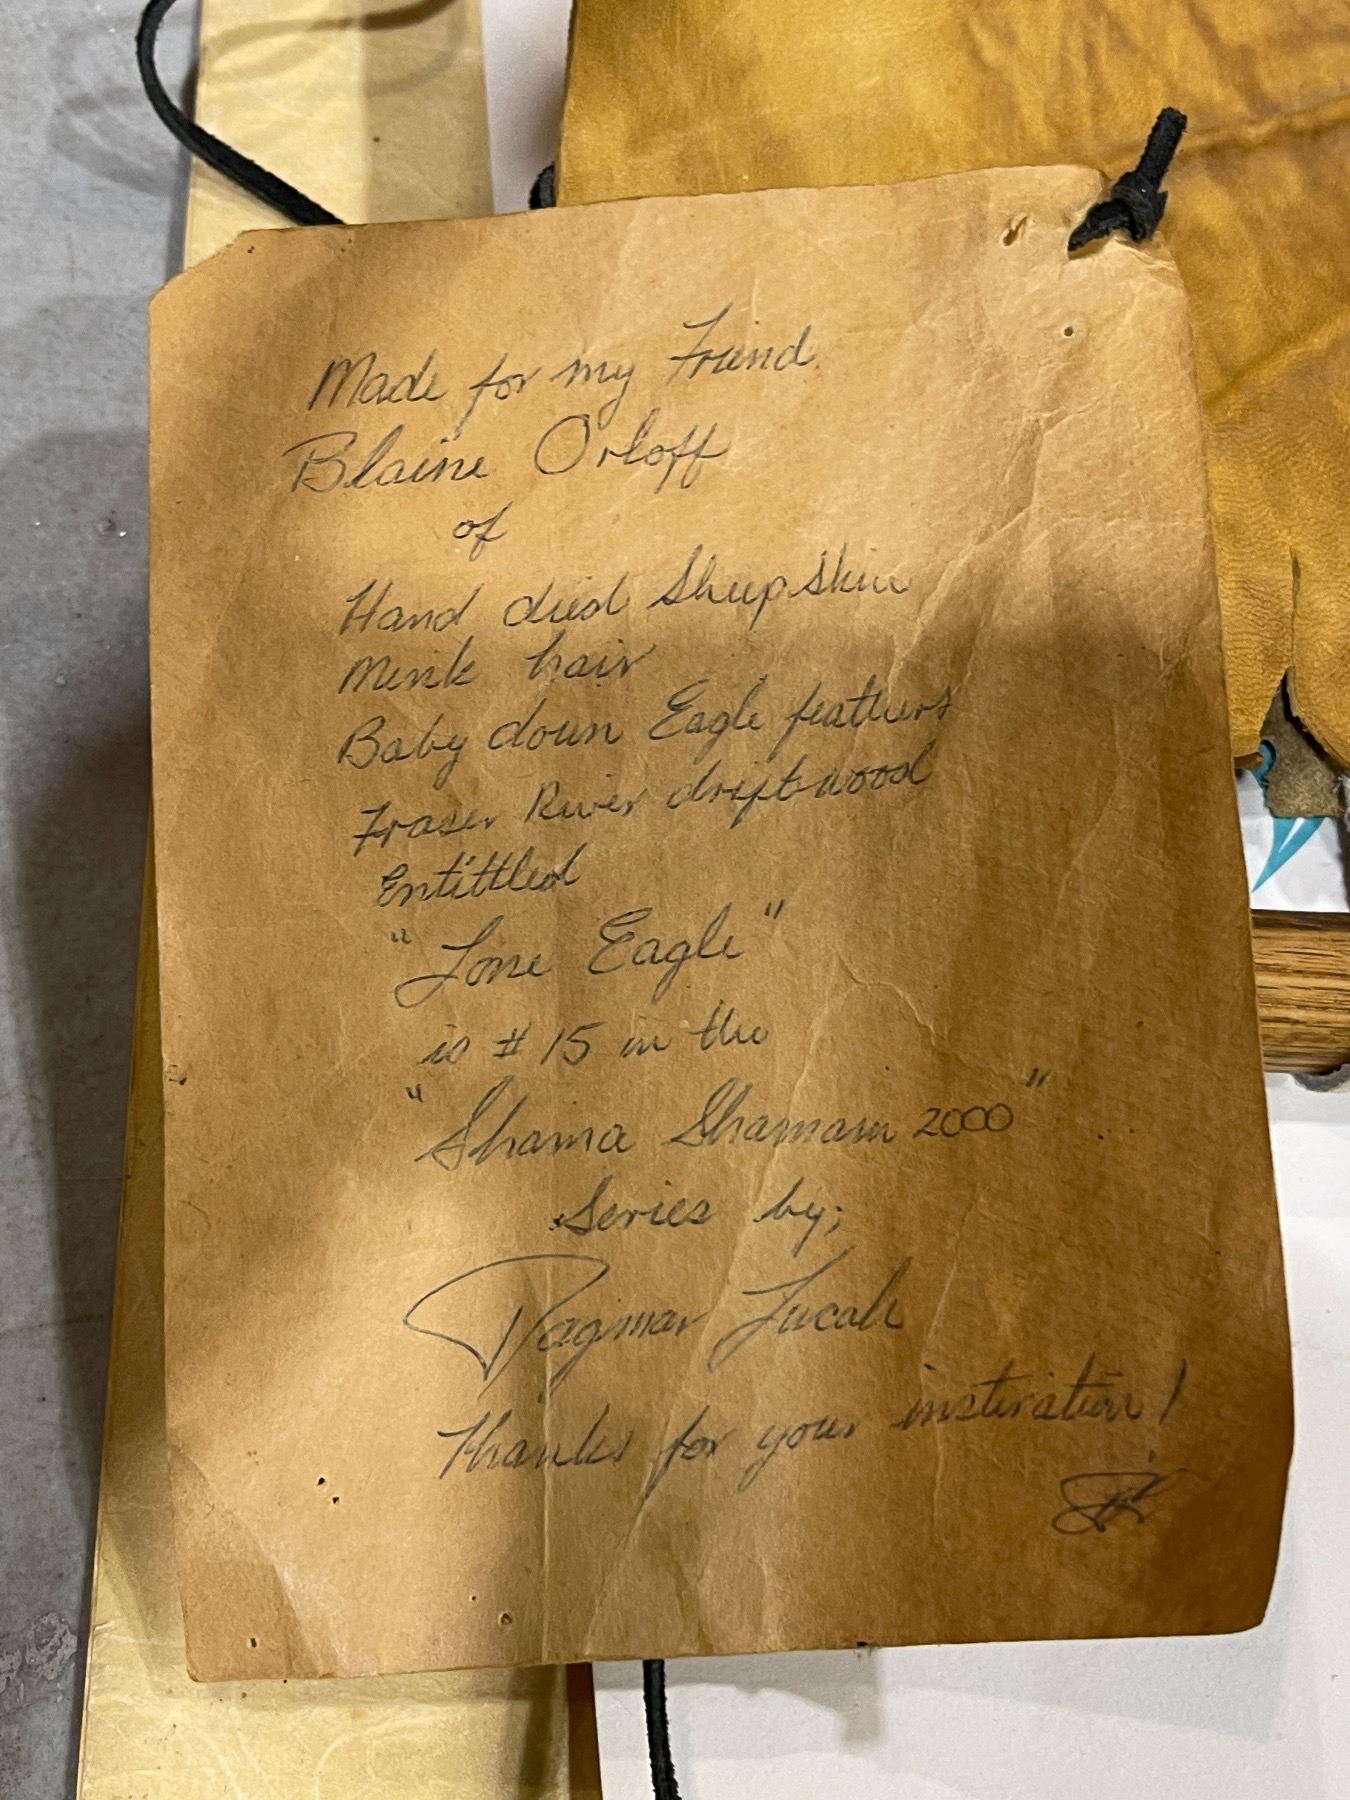 Made for my Friend
Blaine Orloff
of
Hand died Sheepskin
Mink hair
Baby down Eagle feathers
Fraser River driftwood
Entittled
"Lone Eagle"
is # 15 in the
"Shama Shamam 2000"
Series by;
Dagmar
Thanks for your